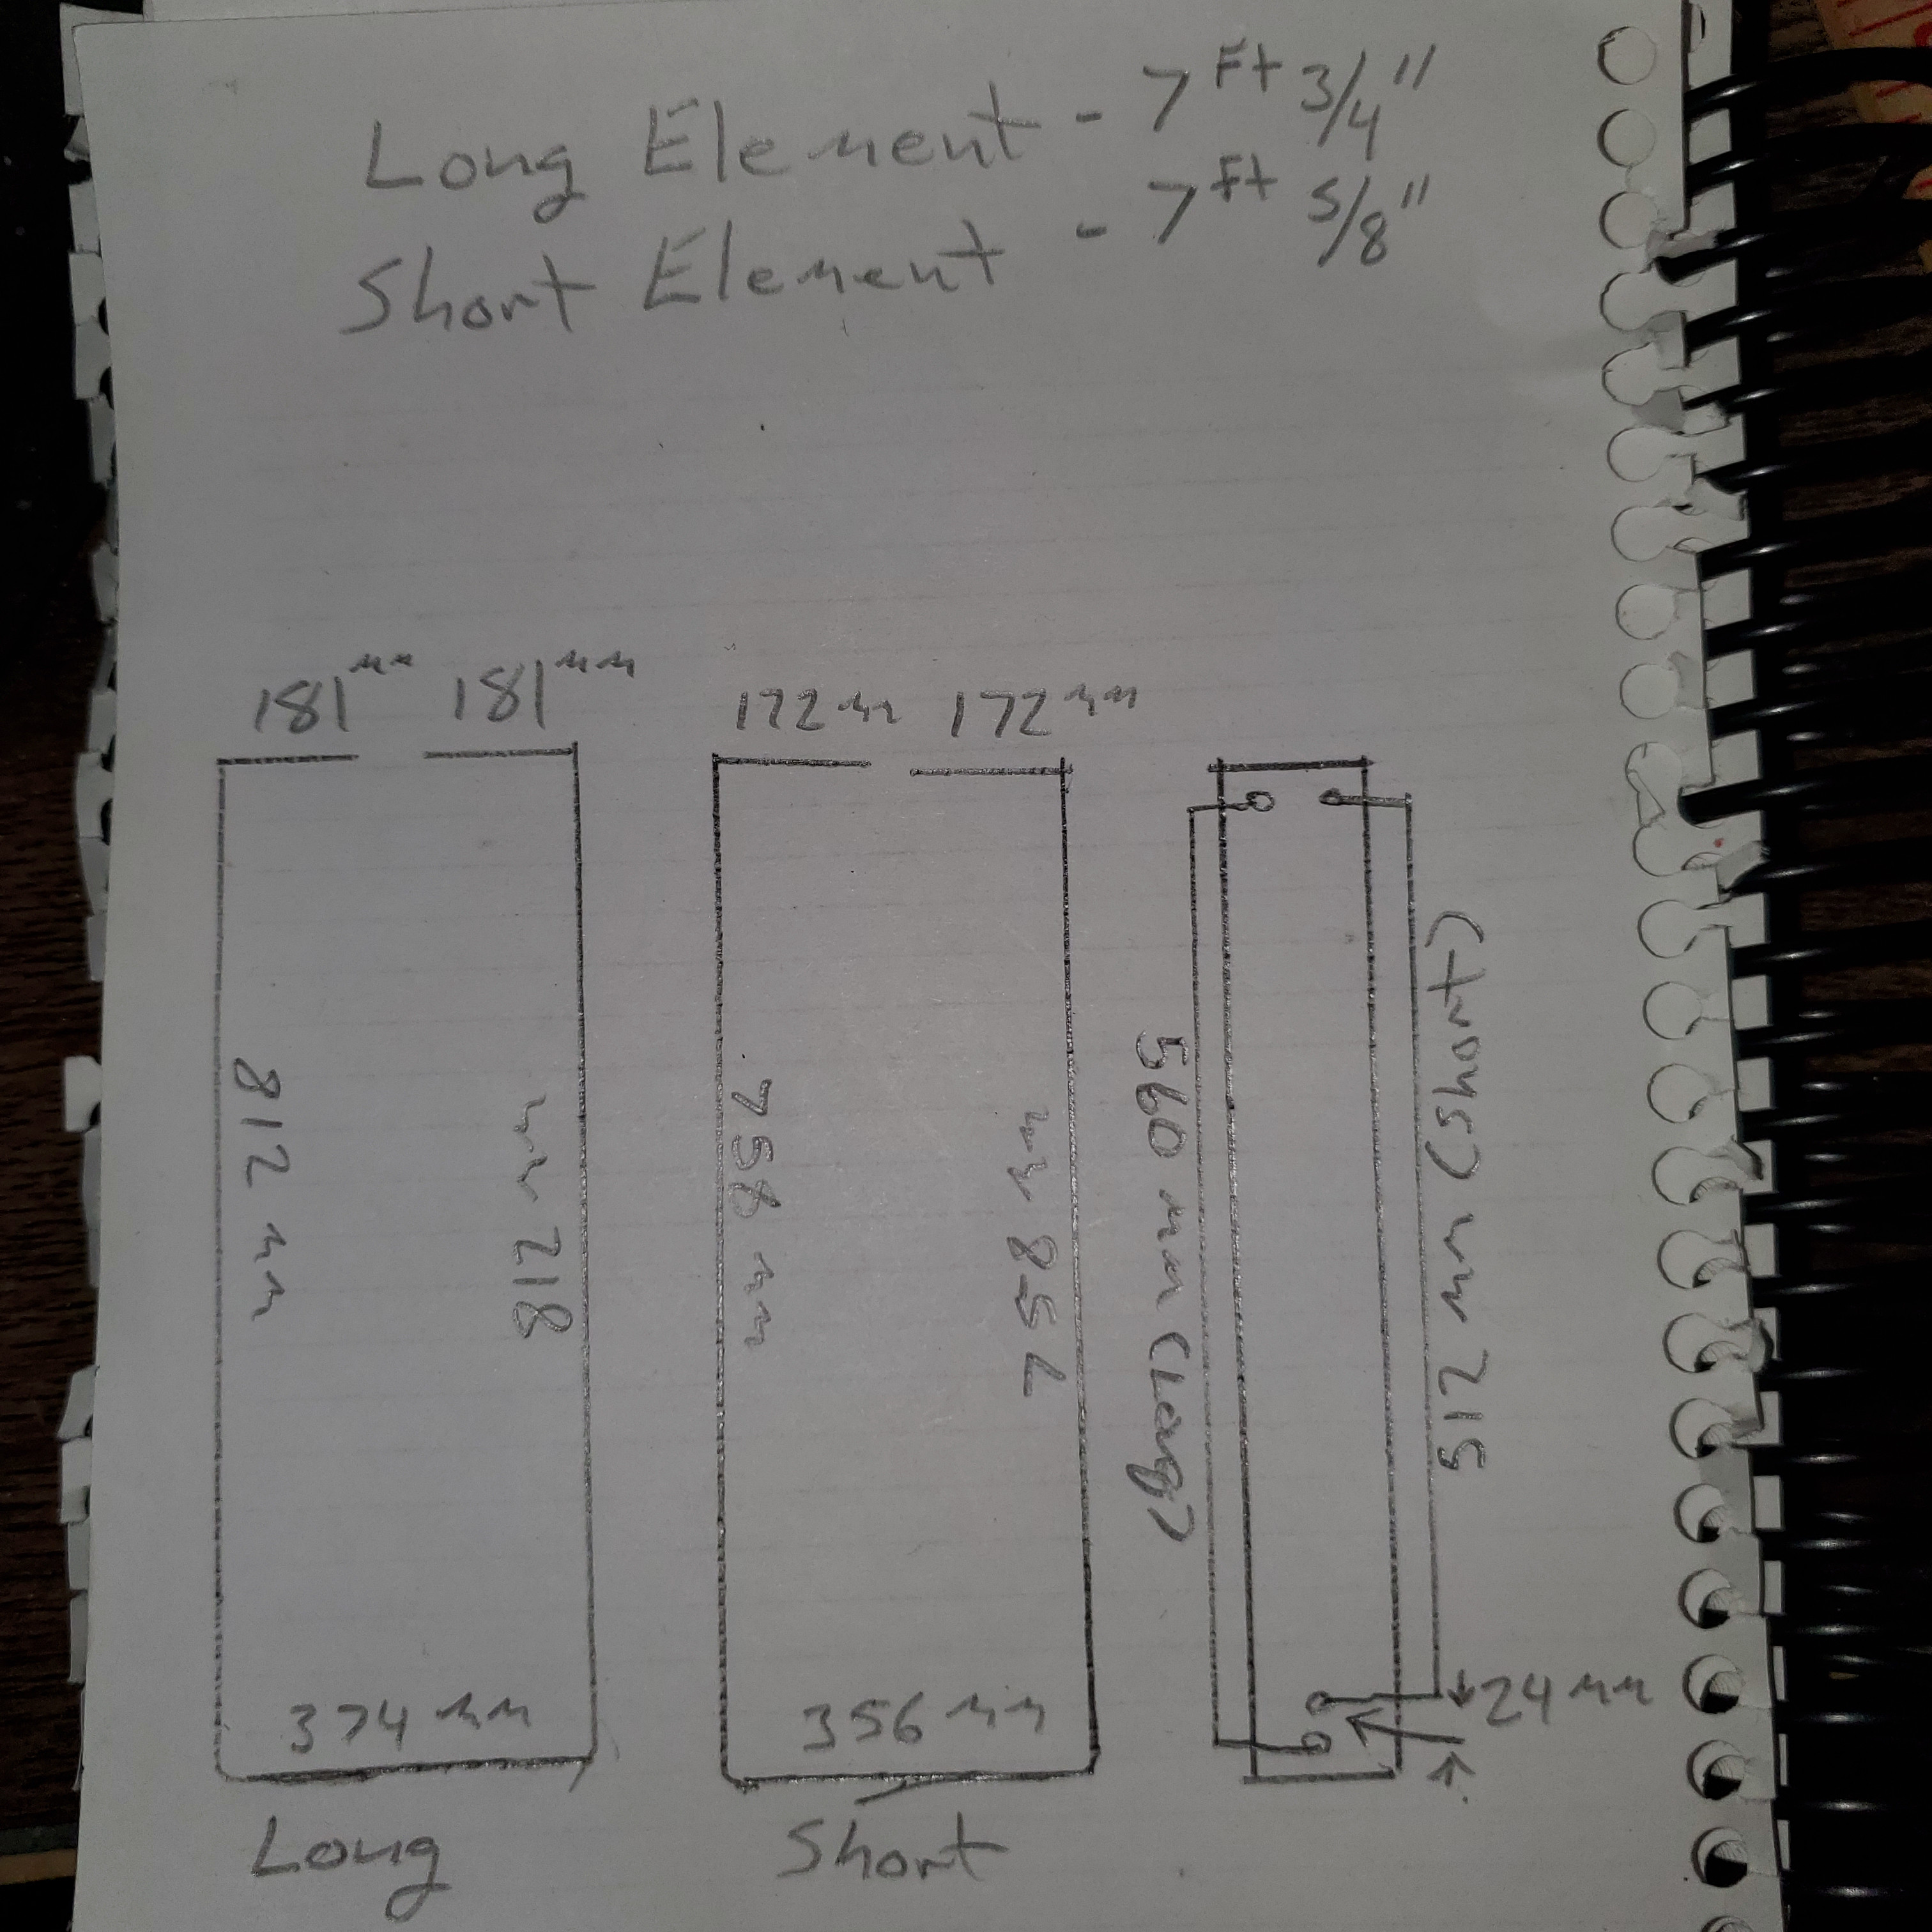 Long Element - 7 Ft 3/4"
Short Element - 7 Ft 5/8"
181 mm 181 mm 172 mm 172 mm
812 mm
812 mm
758 mm
758 mm
560 mm (Long)
512 mm (Short)
24 mm
374 mm
356 mm
Long
Short